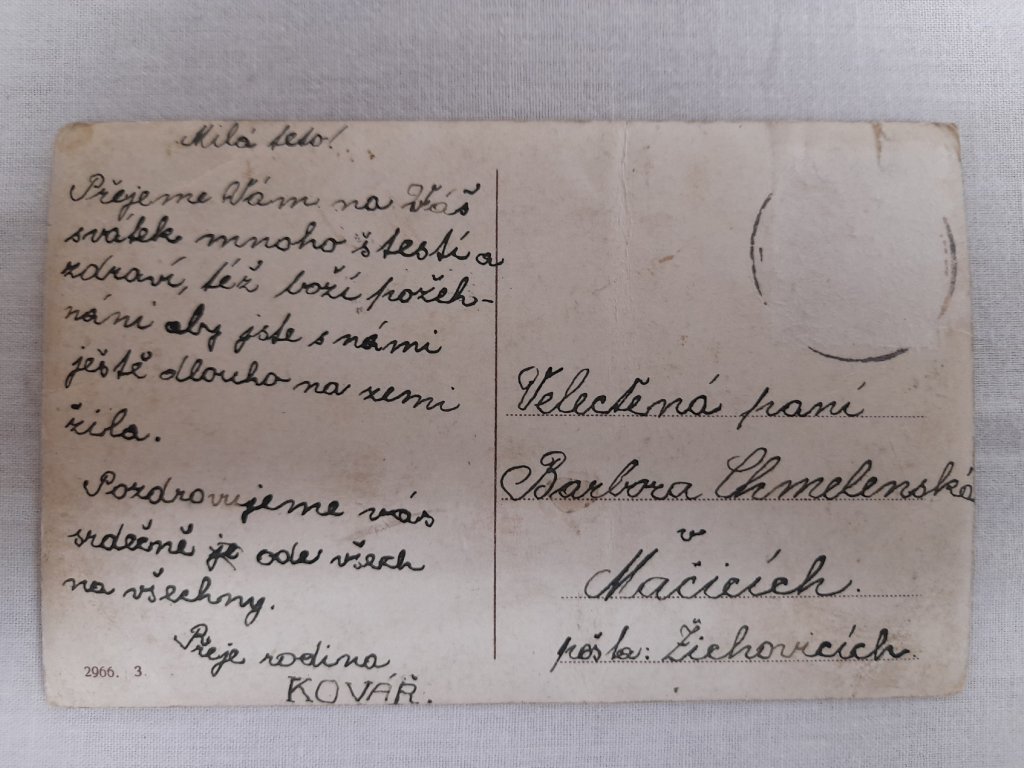 Milá teto!
Přejeme Vám na Váš
svátek mnoho štestí a
zdraví, též boží požeh-
náni aby jste s námi
ještě dlouho na zemi
žila.
Pozdrovujeme vás
srdečně je ode všech
na všechny.
Přeje rodina
KOVÁŘ.
2966. 3
Velectěná paní
Barbora Chmelenská
v
Mačicích.
pošta: Žichovicích.